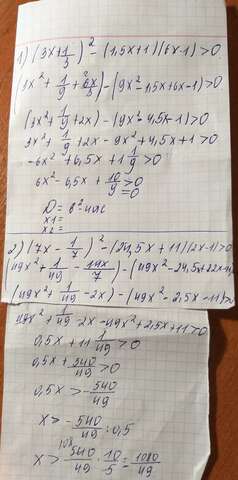 1) (3x+1/3)² - (1,5x+1)(6x-1)>0
(3x²+1/9+6x/3) - (9x²-1,5x+6x-1)>0
(3x²+1/9+2x) - (9x²-4,5x-1)>0
3x²+1/9+2x-9x²+4,5x+1>0
-6x²+6,5x+1 1/9>0
6x²-6,5x+10/9>0
=0
D=b²-4ac
x1=
x2=
2) (7x-1/7)² - (24,5x+11)(2x-1)>0
(49x²+1/49-14x/7) - (49x²-24,5x+22x-11
(49x²+1/49-2x) - (49x²-2,5x-11)>0
49x²+1/49-2x-49x²+2,5x+11>0
0,5x+11 1/49>0
0,5x+540/49>0
0,5x>-540/49
x>-540/49:0,5
x>540/49·10/5=1080/49